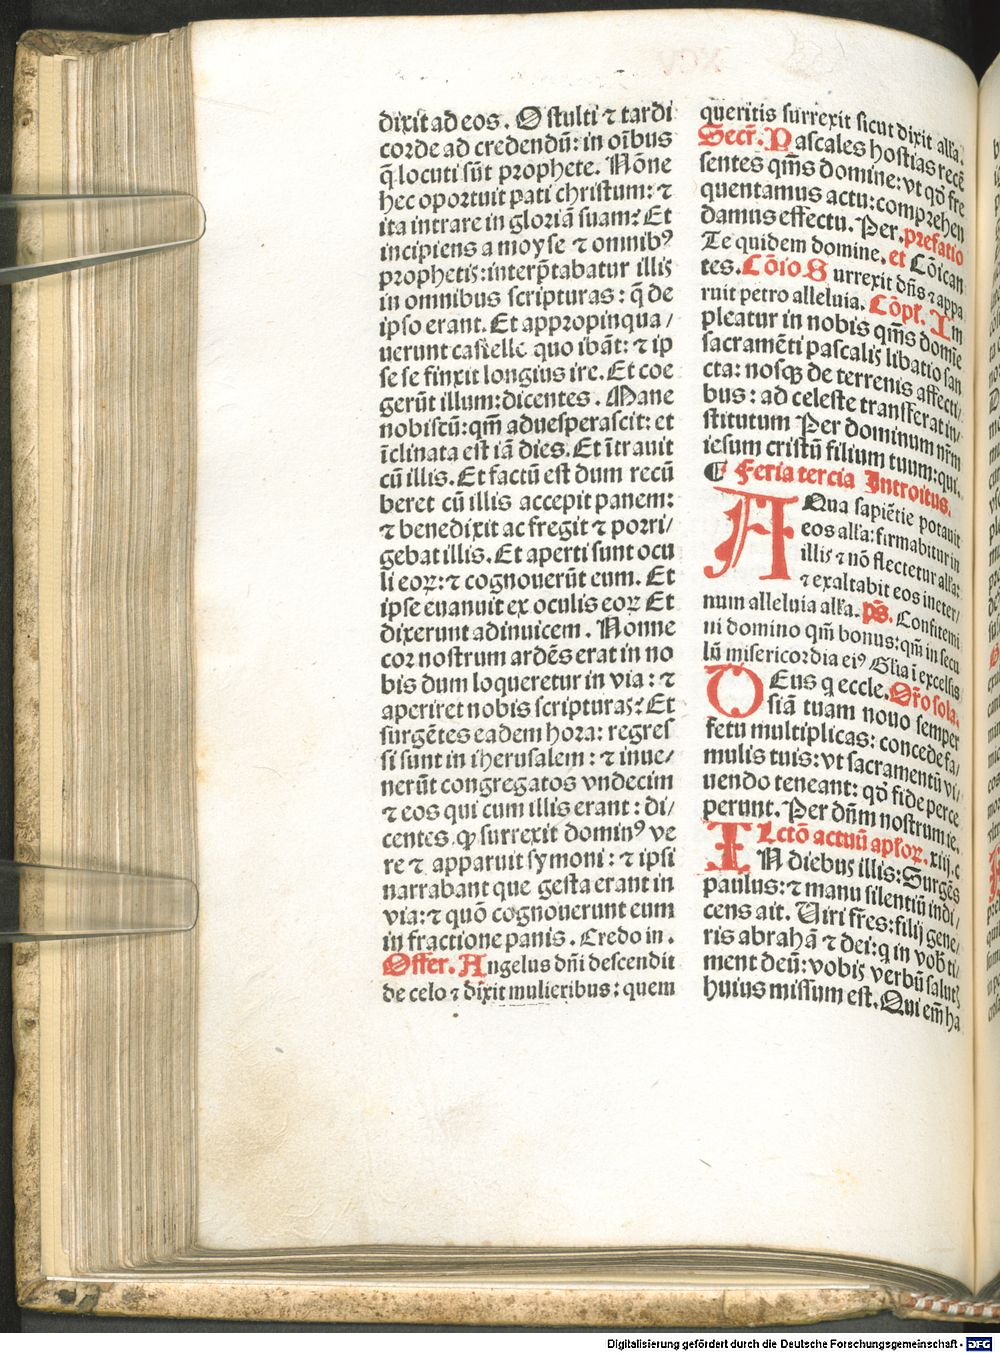 dixit ad eos. O stulti ⁊ tardi
corde ad credendū: in oībus
q̄ locuti sūt prophete. Nōne
hec oportuit pati christum: ⁊
ita intrare in gloriā suam? Et
incipiens a moyse ⁊ omnibꝰ
prophetis: interp̄tabatur illis
in omnibus scripturas: q̄ de
ipso erant. Et appropinqua/
uerunt castello quo ibāt: ⁊ ip
se se finxit longius ire. Et coe
gerūt illum: dicentes. Mane
nobiscū: qm̄ aduesperascit: et
īclinata est iā dies. Et ītrauit
cū illis. Et factū est dum recū
beret cū illis accepit panem:
⁊ benedixit ac fregit ⁊ porri/
gebat illis. Et aperti sunt ocu
li eoꝝ: ⁊ cognouerūt eum. Et
ipse euanuit ex oculis eoꝝ Et
dixerunt adinuicem. Nonne
cor nostrum ardēs erat in no
bis dum loqueretur in via: ⁊
aperiret nobis scripturas? Et
surgētes eadem hora: regres
si sunt in iherusalem: ⁊ inue/
nerūt congregatos vndecim
⁊ eos qui cum illis erant: di/
centes. ꝙ surrexit dominꝰ ve
re ⁊ apparuit symoni: ⁊ ipsi
narrabant que gesta erant in
via: ⁊ quō cognouerunt eum
in fractione panis. Credo in.
Offer. Angelus dn̄i descendit
de celo ⁊ dixit mulieribus: quem
queritis surrexit sicut dixit alła.
Secr̄. Pascales hostias recē
sentes qm̄s domine: vt qd̄ fre
quentamus actu: comprehen
damus effectu. Per. prefatio
Te quidem domine. et Cōican
tes. Cōio Surrexit dn̄s ⁊ appa
ruit petro alleluia. Cōpł. Im
pleatur in nobis qm̄s domīe
sacramēti pascalis libatio san
cta: nosqꝫ de terrenis affecti/
bus: ad celeste transferat in/
stitutum Per dominum nr̄m
iesum cristū filium tuum: qui.
¶ Feria tercia Introitus.
AQua sapiētie potauit
eos alła: firmabitur in
illis ⁊ nō flectetur alła:
⁊ exaltabit eos ineter/
num alleluia alła. ps̄. Confitemi
ni domino qm̄ bonus: qm̄ in secu
lū misericordia eiꝰ Glia ī excelsis
DEus q eccle. Or̄o sola.
siā tuam nouo semper
fetu multiplicas: concede fa/
mulis tuis: vt sacramentū vi/
uendo teneant: qd̄ fide perce
perunt. Per dn̄m nostrum ie.
Lctō actuū apłoꝝ. xiij. c
IN diebus illis: Surgēs
paulus: ⁊ manu silentiū indi/
cens ait. Viri fr̄es: filij gene/
ris abrahā ⁊ dei: q in vob̄ ti/
ment deū: vobis verbū salutꝭ
huius missum est. Qui em̄ ha
Digitalisierung gefördert durch die Deutsche Forschungsgemeinschaft - DFG